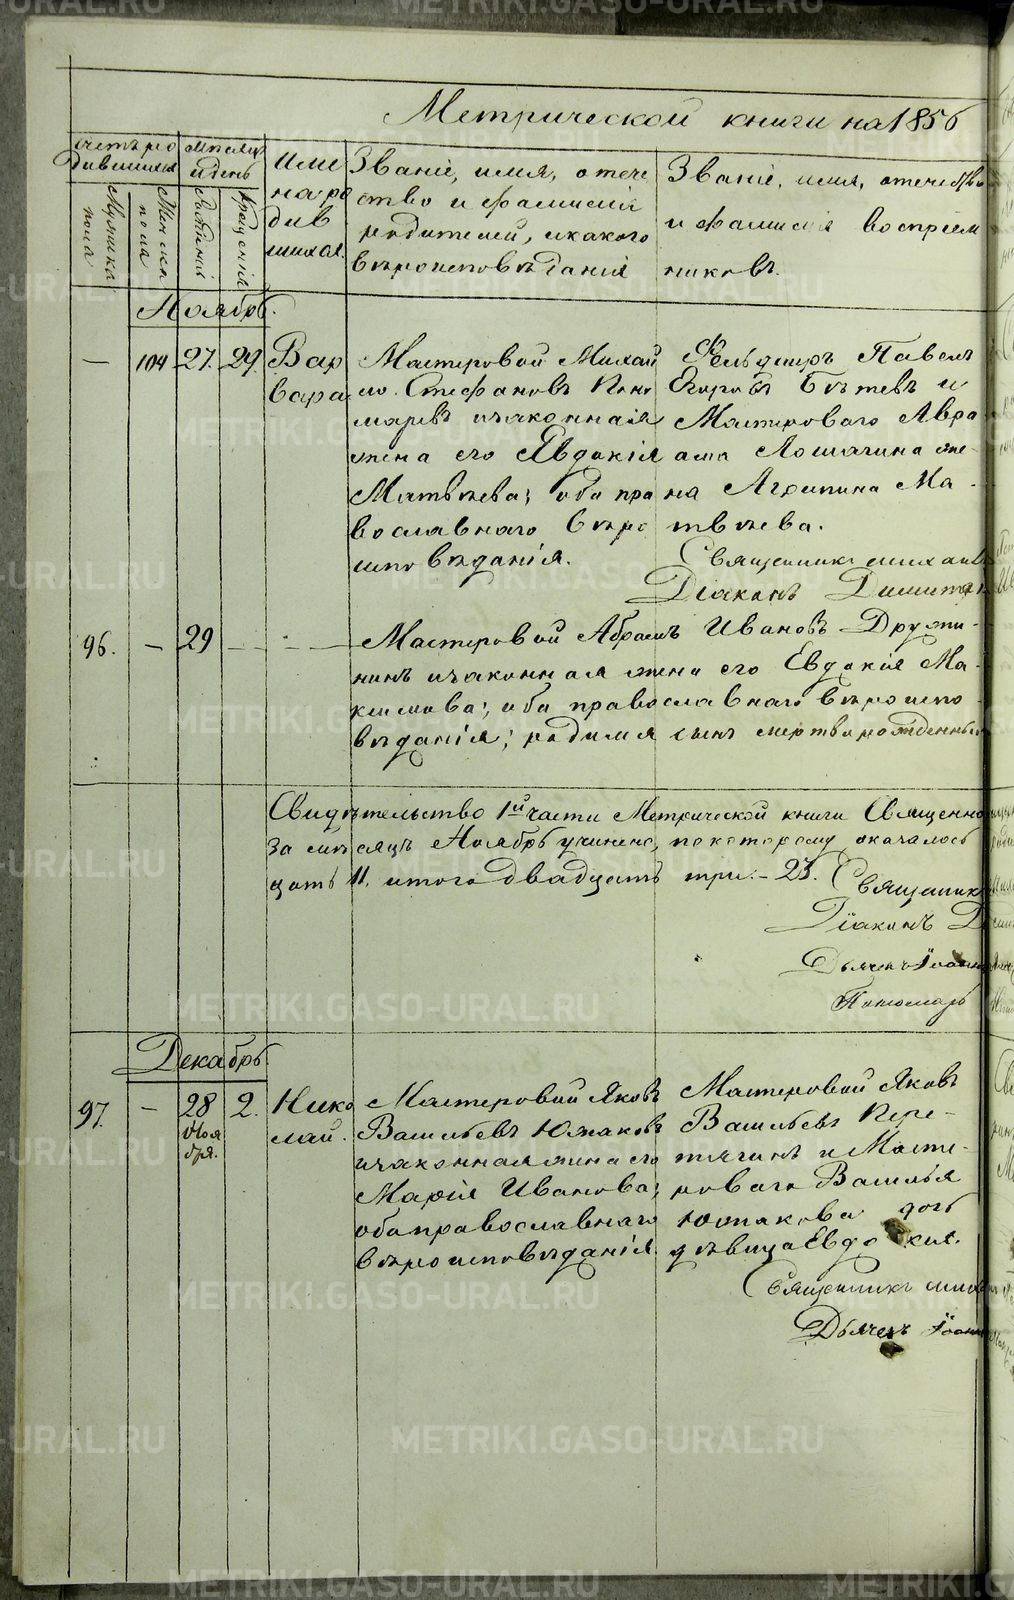 Метрической книги на 1856
Счетъ ро
дившихся
Мужеска
пола
Женска
пола
Месяцъ
и день
Рожденія
Крещенія
Име
на ро
див
шихся.
Званіе, имя, отече
ство и фамилія
родителей, и какого
вѣроисповѣданія
Званіе, имя, отечество
и фамилія воспріем
никовъ.
Ноябрь.
— 104 27. 29.
Вар
вара
Мастеровой Михаи
ло Стефановъ Поно
маревъ и законная
жена его Евдокія
Матвѣева; оба пра
вославнаго вѣро
исповѣданія.
Фельдшеръ Павелъ
Егоровъ Бѣтевъ и
Мастероваго Авра
ама Лошагина же
на Агрипина Ма
твѣева.
Священникъ Михаилъ
Діаконъ Димит
96. — 29 — — —
Мастеровой Абрамъ Ивановъ Дружи
нинъ и законная жена его Евдокія Ма
ксимова; оба православнаго вѣроиспо
вѣданія; родился сынъ мертворожденный
Свидѣтельство 1й части Метрической книги Священно
за мѣсяцъ Ноябрь учинено, по которому оказалось
цать 11. итого двадцать три. – 23. Священникъ
Діаконъ Д
Дьячекъ Іоаннъ
Пономарь
Декабрь
97. — 28
Ноя
бря.
2.
Нико
лай.
Мастеровой Яковъ
Васильевъ Южаковъ
и законная жена его
Марія Иванова;
оба православнаго
вѣроисповѣданія.
Мастеровой Яковъ
Васильевъ Пере-
тягинъ и Масте-
роваго Василья
Южакова дочь
дѣвица Евдокия.
Священникъ Миха
Дьячекъ Іоаннъ
METRIKI.GASO-URAL.RU